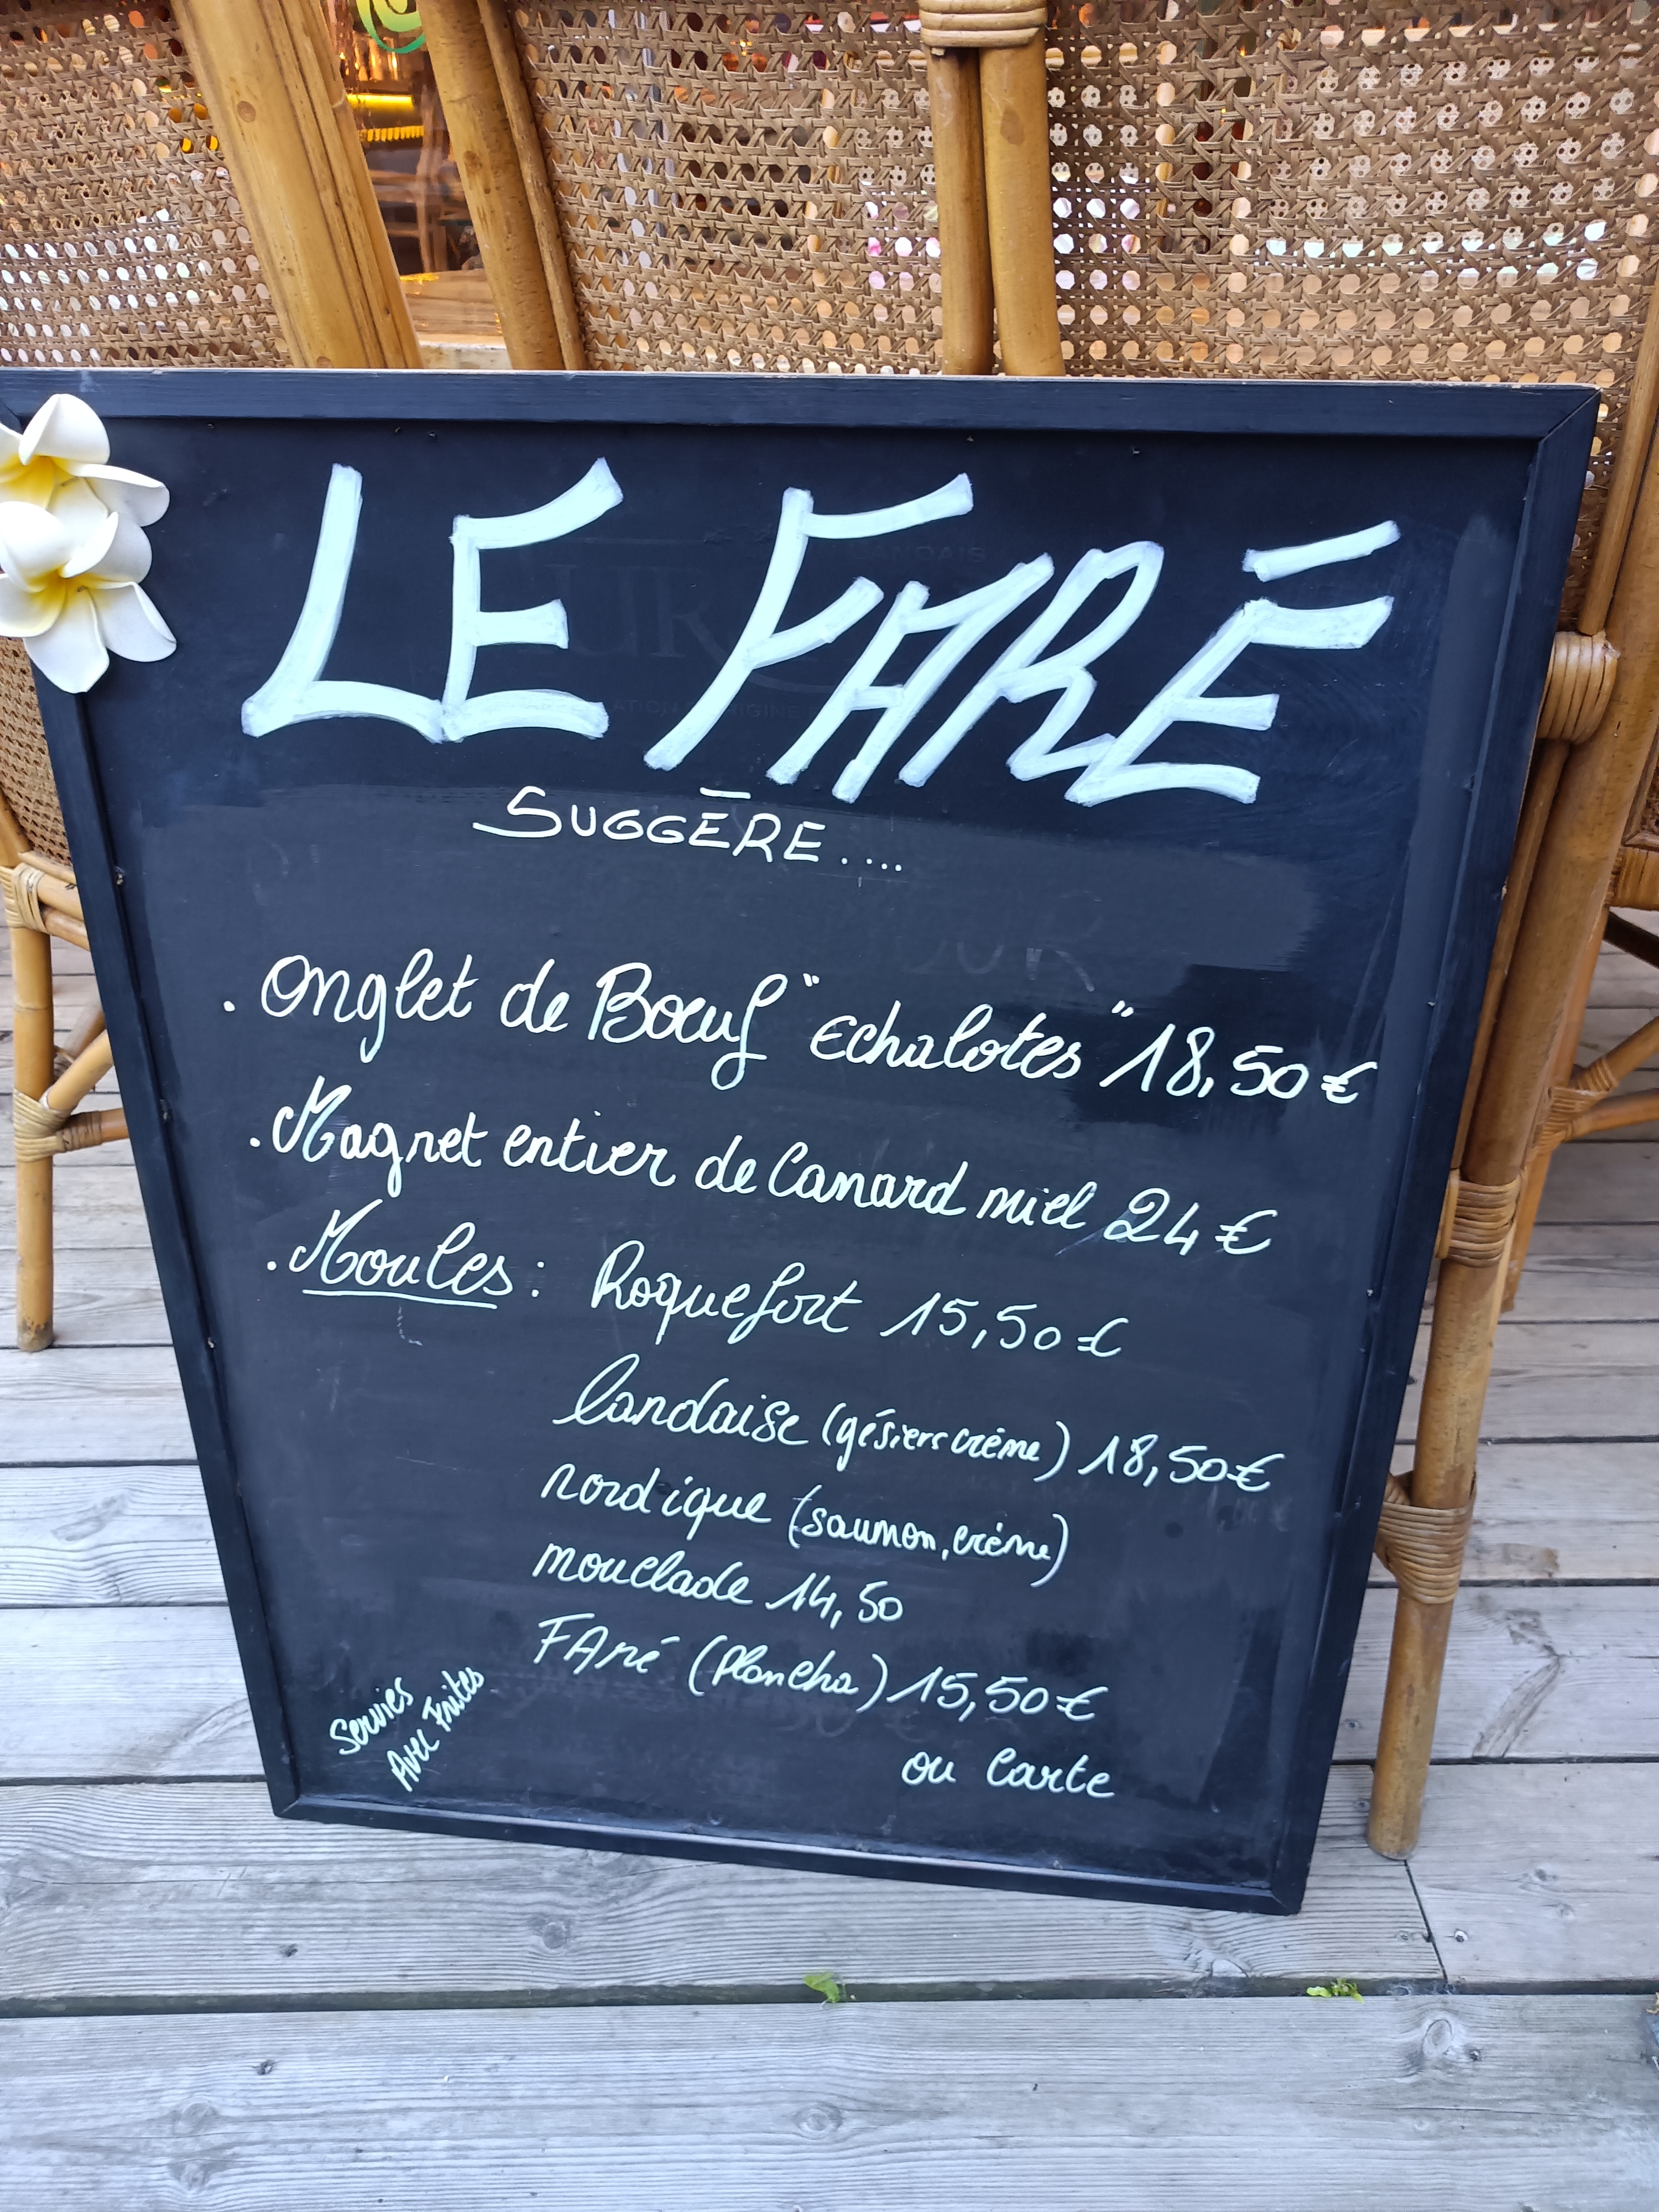 LE FARÉ
SUGGĒRE....
. Onglet de Boeuf "Echalotes" 18,50 €
. Magret entier de Canard miel 24 €
. Moules : Roquefort 15,50 €
landaise (gésiers crème) 18,50 €
nordique (saumon, crème)
mouclade 14,50
FAré (Plancha) 15,50 €
ou Carte
Servies
Avec Frites